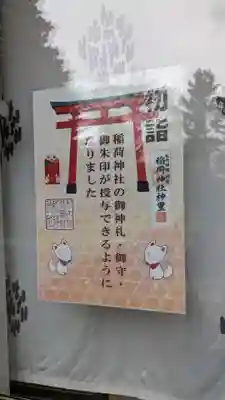 初詣
稲荷神社神璽
稲荷神社の御神札・御守・
御朱印が授与できるように
なりました